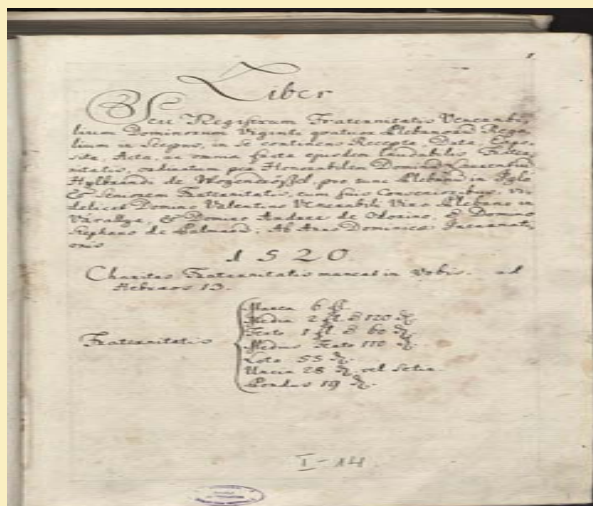 1.
Liber
Seu Regestrum Fraternitatis Venerabi-
lium Dominorum Viginti quatuor Plebanorum Rega-
lium in Scepus, in se continens Recepta, Data, Expo-
sita, Acta, ac omnia facta ejusdem laudabilis Frater-
nitatis, per Honorabilem Dominum
de pro tunc Plebanum in Iglo
Et Seniorem Fraternitatis, cum suis Consororibus, vi-
delicet Domino Valentino Venerabili Viro Plebano in
Varallya, & Domino Andrea de Odorino, & Domino
Stephano de Ab Anno Dominicæ Incarnati-
onis
1520.
Charitas Fraternitatis maneat in Vobis. ad
Hebræos 13.
Fraternitatis
Marca 6 fl.
Media 2 fl. & 120
Ferto 1 fl. & 60
Medius Ferto 110
Loto 55
Uncia 28 vel Setin
Pondus 19
I-14